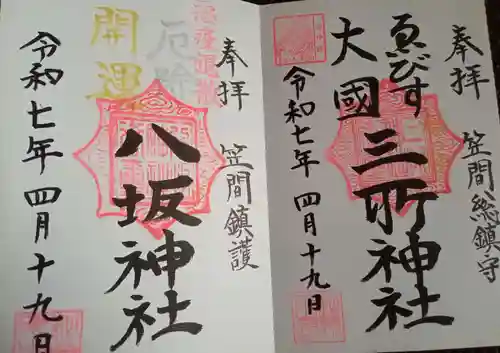 奉拝
笠間総鎮守
ゑびす
大國
三所神社
令和七年四月十九日
奉拝
笠間鎮護
厄除
開運
八坂神社
令和七年四月十九日